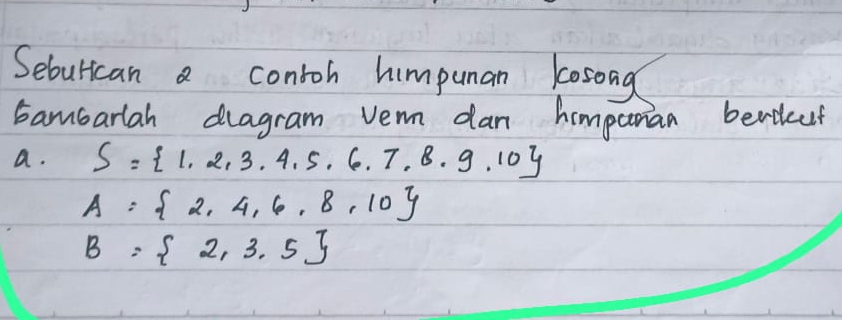 Sebutkan 2 contoh himpunan kosong
Gambarlah diagram Venn dari himpunan berikut
a. S = { 1, 2, 3, 4, 5, 6, 7, 8, 9, 10 }
A = { 2, 4, 6, 8, 10 }
B = { 2, 3, 5 }